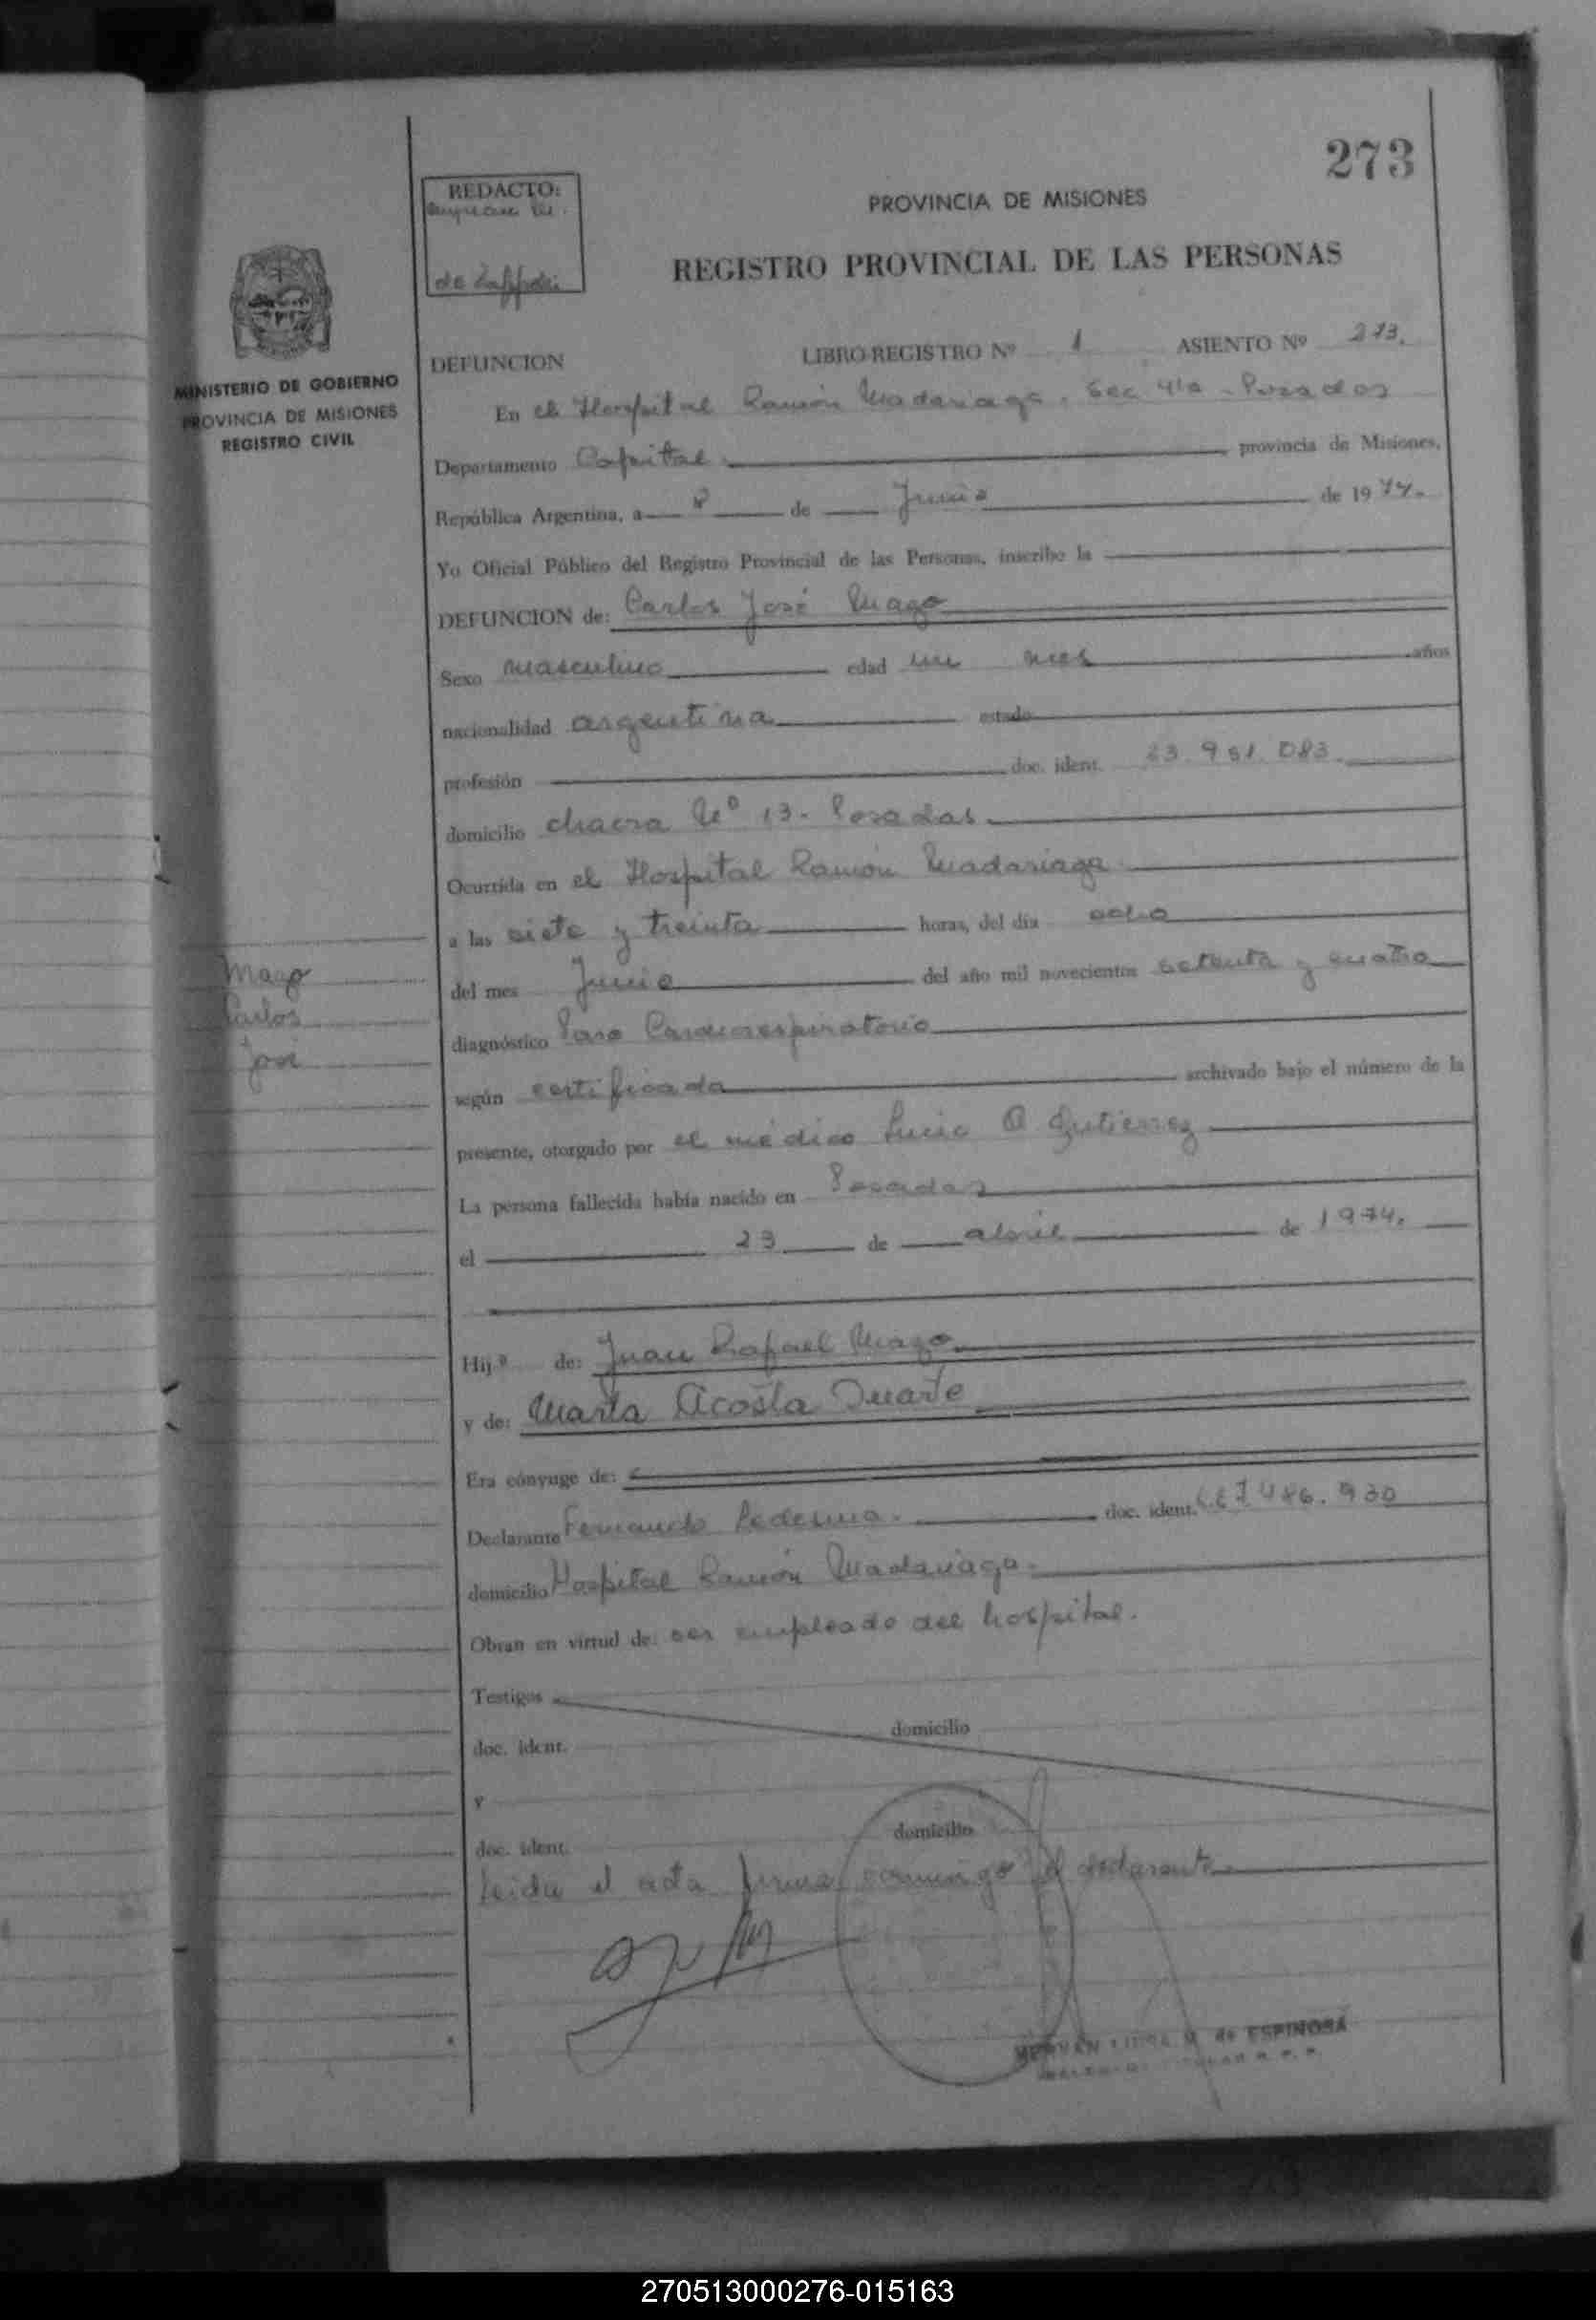 273
REDACTO:
PROVINCIA DE MISIONES
REGISTRO PROVINCIAL DE LAS PERSONAS
MINISTERIO DE GOBIERNO
PROVINCIA DE MISIONES
REGISTRO CIVIL
DEFUNCION LIBRO-REGISTRO Nº 1 ASIENTO Nº 273.
En el Hospital Ramón Madariaga, Sec 4ta - Posadas
Departamento Capital provincia de Misiones,
República Argentina, a 8 de Junio de 1974.
Yo Oficial Público del Registro Provincial de las Personas, inscribo la
DEFUNCION de: Carlos José Mago
Sexo masculino edad un mes años
nacionalidad argentina estado
profesión doc. ident. 23.951.083.
domicilio chacra Nº 13. Posadas.
Ocurrida en el Hospital Ramón Madariaga.
a las siete y treinta horas, del día ocho
del mes Junio del año mil novecientos setenta y cuatro
diagnóstico Paro Cardiorespiratorio
según certificado archivado bajo el número de la
presente, otorgado por el médico Lucio A Gutierrez
La persona fallecida había nacido en Posadas
el 23 de abril de 1974.
Hijo de: Juan Rafael Mago
y de: Marta Acosta Duarte
Era cónyuge de:
Declarante Fernando Ledesma. doc. ident. L.E 7.486.930
domicilio Hospital Ramón Madariaga.
Obran en virtud de: ser empleado del hospital.
Testigos
doc. ident. domicilio
y
doc. ident. domicilio
Leida el acta firma conmigo el declarante
Mago
Carlos
José
de ESPINOSA
270513000276-015163